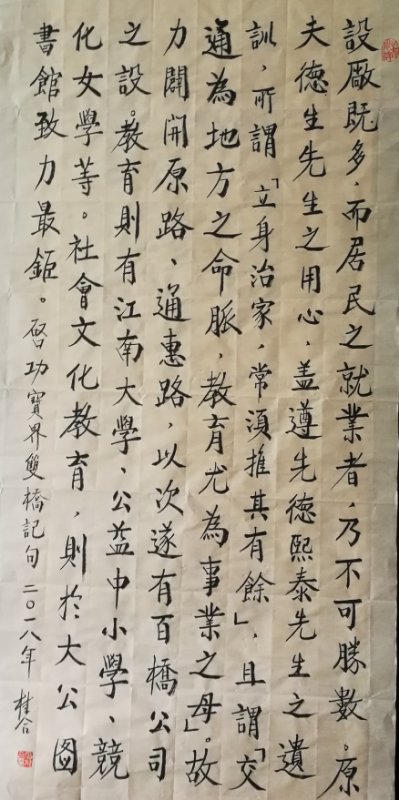 設廠既多，而居民之就業者，乃不可勝數。原
夫德生先生之用心，蓋遵先德熙泰先生之遺
訓，所謂「立身治家，常須推其有餘」，且謂「交
通為地方之命脈，教育尤為事業之母」。故
力闢開原路、通惠路，以次遂有百橋公司
之設。教育則有江南大學、公益中小學、競
化女學等。社會文化教育，則於大公圖
書館致力最鉅。啓功寶界雙橋記句 二〇一八年 桂合